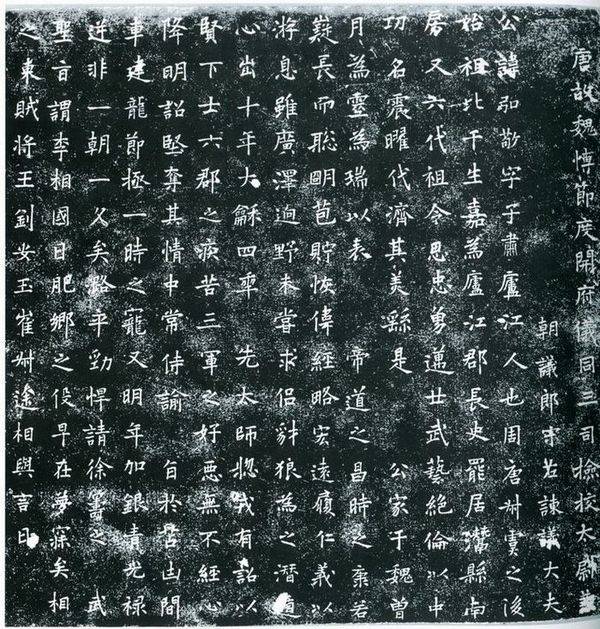 唐故魏博節度開府儀同三司檢校太尉兼
朝議郎守左諫議大夫
公諱弘敬字子肅廬江人也周唐叔虞之後
始祖比干生嘉為廬江郡長史罷居潛縣南
居又六代祖令思忠勇邁世武藝絕倫以中
功名震曜代濟其美繇是 公家于魏曾
月為靈為瑞以表 帝道之昌時之康若
嶷長而聰明苞貯恢偉經略宏遠履仁義以
將息雖廣澤迥野未嘗求侶豺狼為之潛
心出十年大龢四亟 先太師惣戎有詔以
賢下士六郡之疾苦三軍之好惡無不經心
降明詔堅奪其情中常侍諭 旨於苫凷間
車建龍節極一時之寵又明年加銀青光祿
逆非一朝一夕矣潞平勁悍請徐籌之 武
聖旨謂李相國曰肥鄉之役早在夢寐矣相
之東賊將王釗安玉崔叔途相與言曰